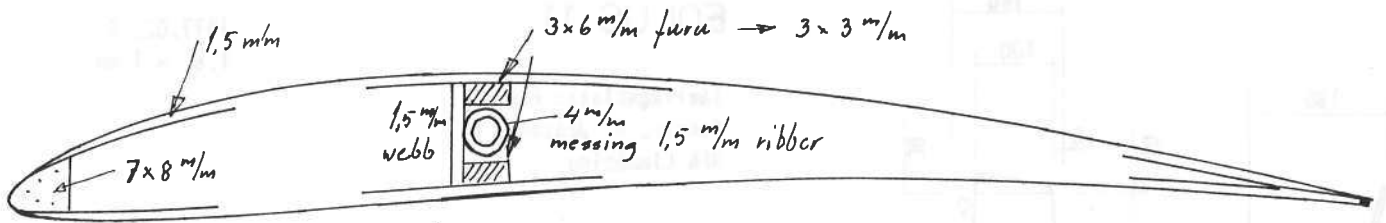 1,5 m/m
3×6 m/m furu → 3×3 m/m
1,5 m/m
webb
4 m/m
messing
1,5 m/m ribber
7×8 m/m